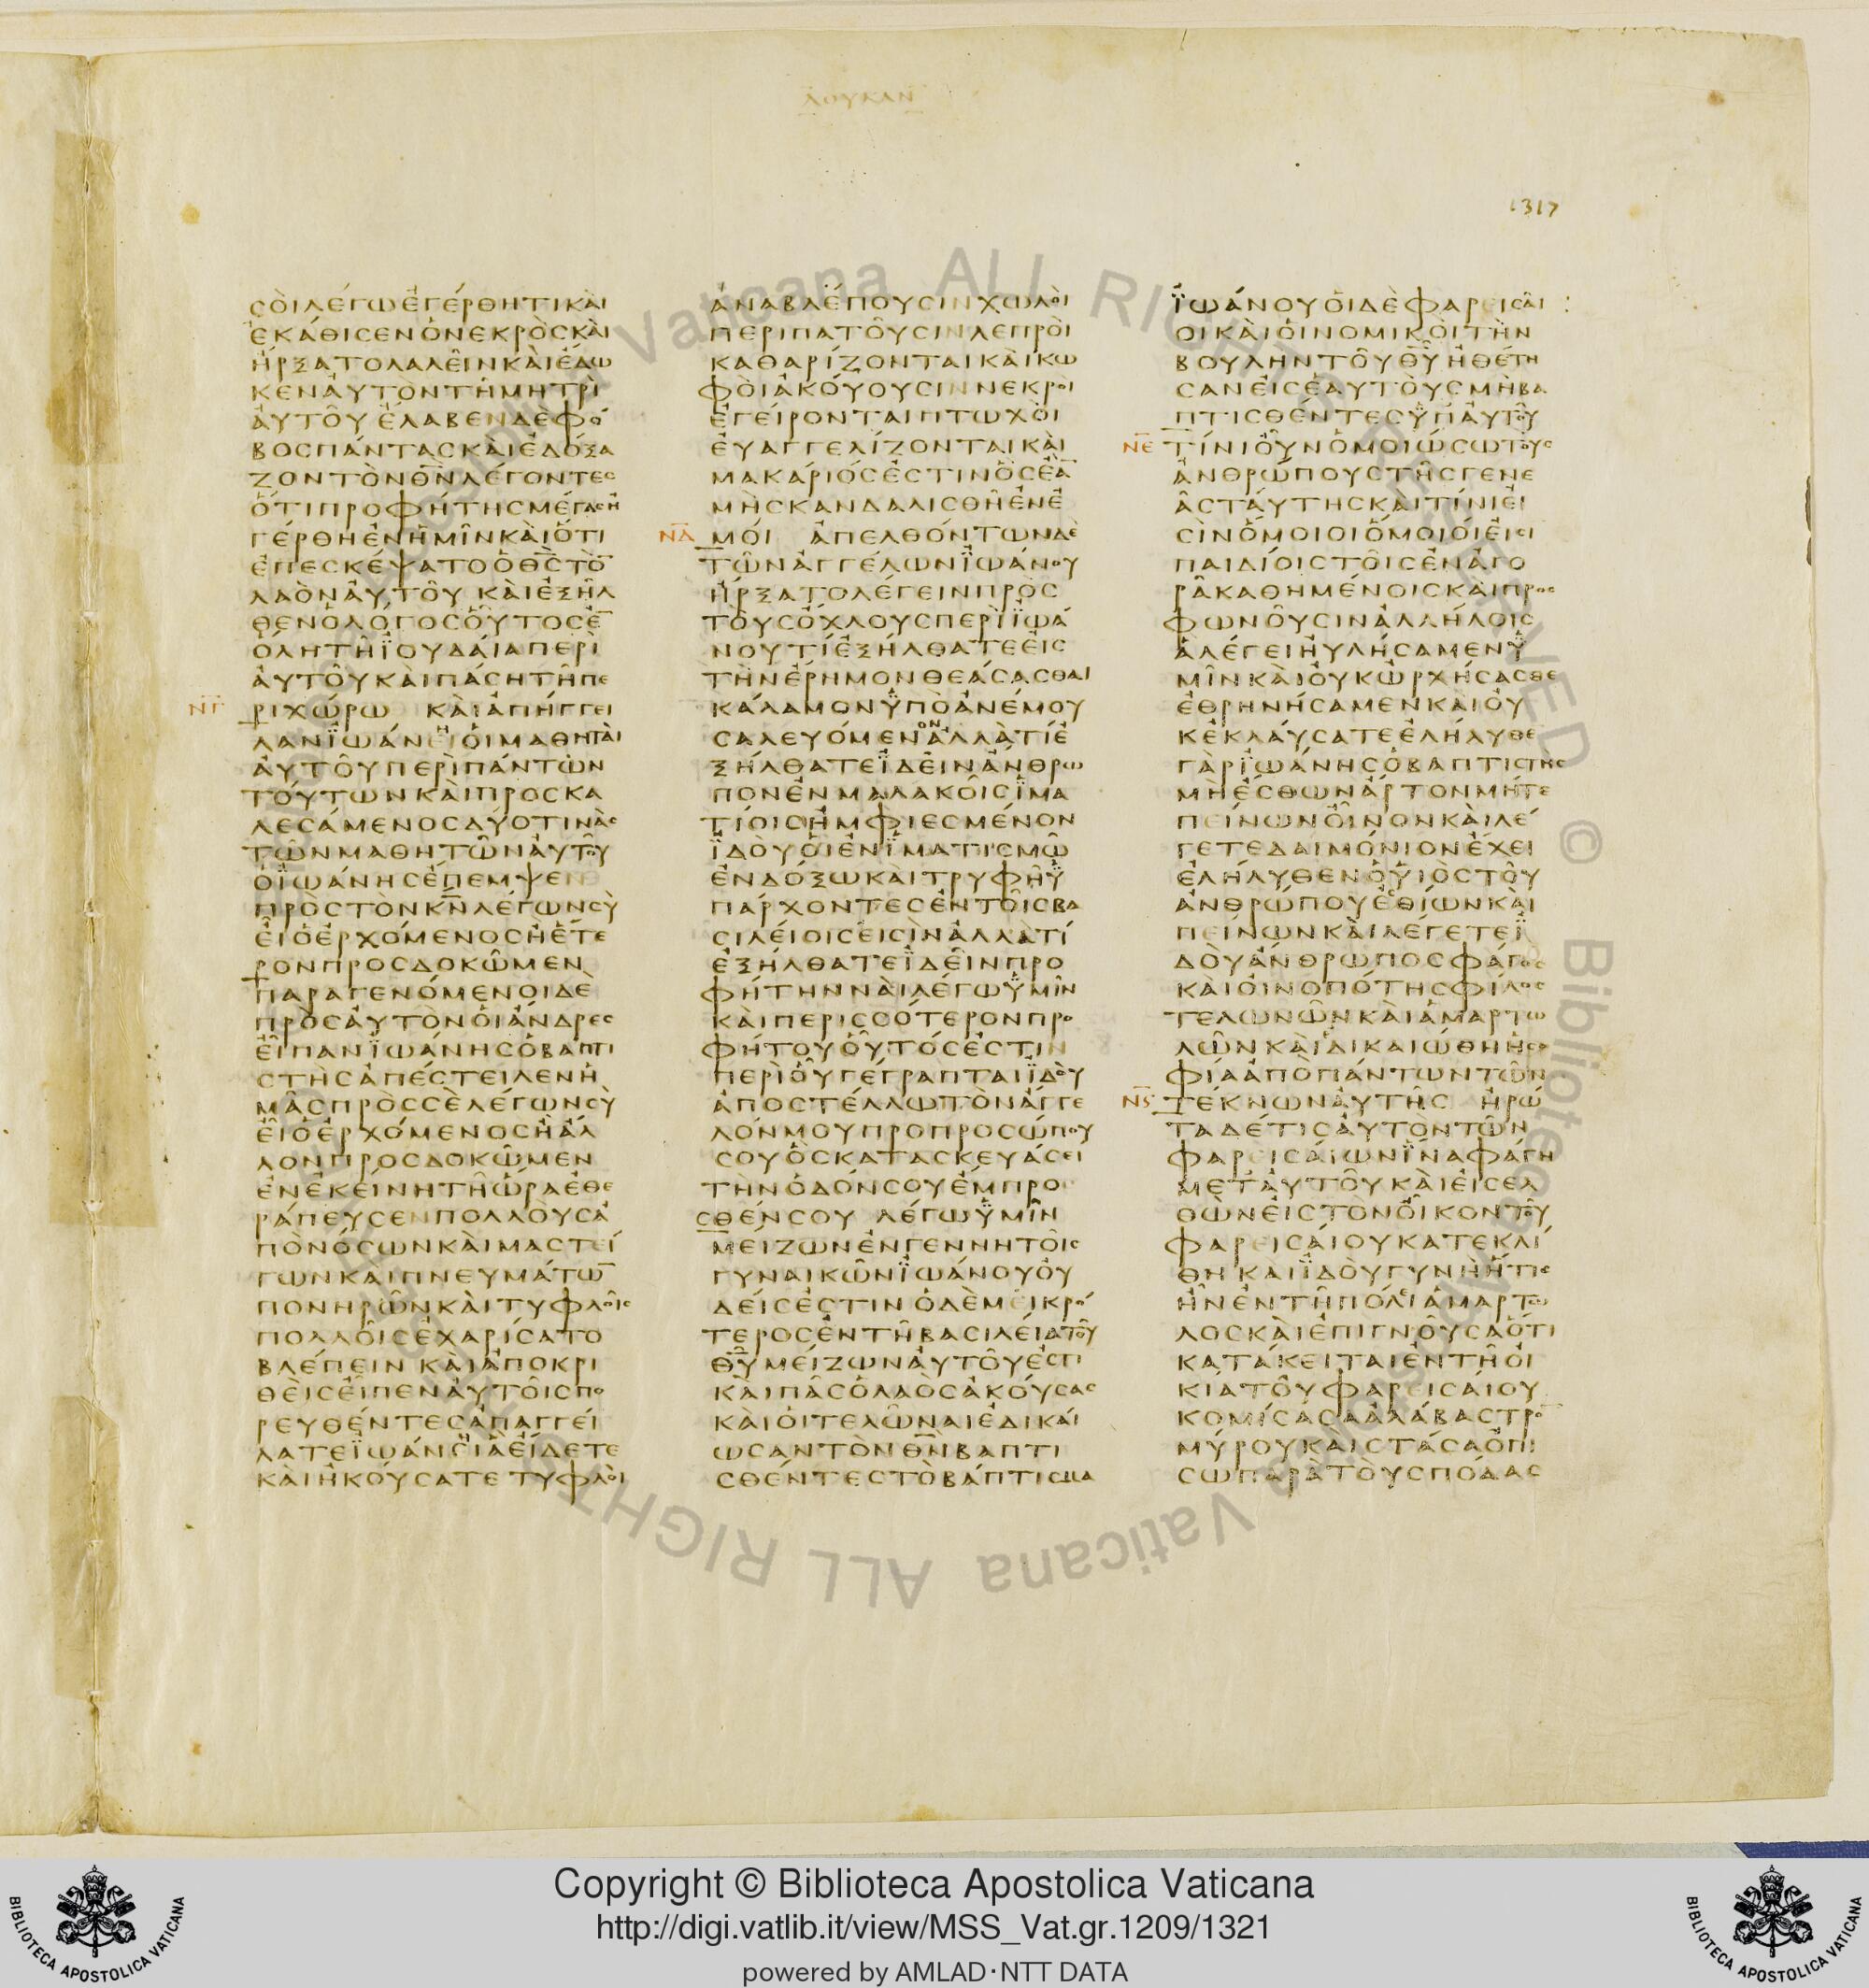 ΛΟΥΚΑΝ
1317
ϹΟΙΛΕΓΩΕΓΕΡΘΗΤΙΚΑΙ
ΕΚΑΘΙϹΕΝΟΝΕΚΡΟϹΚΑΙ
ΗΡΞΑΤΟΛΑΛΕΙΝΚΑΙΕΔΩ
ΚΕΝΑΥΤΟΝΤΗΜΗΤΡΙ
ΑΥΤΟΥ ΕΛΑΒΕΝΔΕΦΟ
ΒΟϹΠΑΝΤΑϹΚΑΙΕΔΟΞΑ
ΖΟΝΤΟΝΘ̅Ν̅ΛΕΓΟΝΤΕϹ
ΟΤΙΠΡΟΦΗΤΗϹΜΕΓΑϹΗ
ΓΕΡΘΗΕΝΗΜΙΝΚΑΙΟΤΙ
ΕΠΕϹΚΕΨΑΤΟΟΘ̅Ϲ̅ΤΟ̅
ΛΑΟΝΑΥΤΟΥ ΚΑΙΕΞΗΛ
ΘΕΝΟΛΟΓΟϹΟΥΤΟϹΕ̅
ΟΛΗΤΗΪΟΥΔΑΙΑΠΕΡΙ
ΑΥΤΟΥΚΑΙΠΑϹΗΤΗΠΕ
Ν̅Γ̅ ΡΙΧΩΡΩ ΚΑΙΑΠΗΓΓΕΙ
ΛΑΝΪΩΑΝΕΙΗΟΙΜΑΘΗΤΑΙ
ΑΥΤΟΥΠΕΡΙΠΑΝΤΩΝ
ΤΟΥΤΩΝΚΑΙΠΡΟϹΚΑ
ΛΕϹΑΜΕΝΟϹΔΥΟΤΙΝΑϹ
ΤΩΝΜΑΘΗΤΩΝΑΥΤΟΥ
ΟΪΩΑΝΗϹΕΠΕΜΨΕΝ
ΠΡΟϹΤΟΝΚ̅Ν̅ΛΕΓΩΝϹΥ
ΕΙΟΕΡΧΟΜΕΝΟϹΗΕΤΕ
ΡΟΝΠΡΟϹΔΟΚΩΜΕΝ
ΠΑΡΑΓΕΝΟΜΕΝΟΙΔΕ
ΠΡΟϹΑΥΤΟΝΟΙΑΝΔΡΕϹ
ΕΙΠΑΝΪΩΑΝΗϹΟΒΑΠΤΙ
ϹΤΗϹΑΠΕϹΤΕΙΛΕΝΗ
ΜΑϹΠΡΟϹϹΕΛΕΓΩΝϹΥ
ΕΙΟΕΡΧΟΜΕΝΟϹΗΑΛ
ΛΟΝΠΡΟϹΔΟΚΩΜΕΝ
ΕΝΕΚΕΙΝΗΤΗΩΡΑΕΘΕ
ΡΑΠΕΥϹΕΝΠΟΛΛΟΥϹΑ
ΠΟΝΟϹΩΝΚΑΙΜΑϹΤΕΙ
ΓΩΝΚΑΙΠΝΕΥΜΑΤΩ̅
ΠΟΝΗΡΩΝΚΑΙΤΥΦΛΟΙϹ
ΠΟΛΛΟΙϹΕΧΑΡΙϹΑΤΟ
ΒΛΕΠΕΙΝ ΚΑΙΑΠΟΚΡΙ
ΘΕΙϹΕΙΠΕΝΑΥΤΟΙϹΠΟ
ΡΕΥΘΕΝΤΕϹΑΠΑΓΓΕΙ
ΛΑΤΕΪΩΑΝΕΙΗΑΕΙΔΕΤΕ
ΚΑΙΗΚΟΥϹΑΤΕ ΤΥΦΛΟΙ
ΑΝΑΒΛΕΠΟΥϹΙΝΧΩΛΟΙ
ΠΕΡΙΠΑΤΟΥϹΙΝΛΕΠΡΟΙ
ΚΑΘΑΡΙΖΟΝΤΑΙΚΑΙΚΩ
ΦΟΙΑΚΟΥΟΥϹΙΝΝΕΚΡΟΙ
ΕΓΕΙΡΟΝΤΑΙΠΤΩΧΟΙ
ΕΥΑΓΓΕΛΙΖΟΝΤΑΙΚΑΙ
ΜΑΚΑΡΙΟϹΕϹΤΙΝΟϹΕΑ̅
ΜΗϹΚΑΝΔΑΛΙϹΘΗΕΝΕ
Ν̅Δ̅ ΜΟΙ ΑΠΕΛΘΟΝΤΩΝΔΕ
ΤΩΝΑΓΓΕΛΩΝΪΩΑΝΟΥ
ΗΡΞΑΤΟΛΕΓΕΙΝΠΡΟϹ
ΤΟΥϹΟΧΛΟΥϹΠΕΡΙΪΩΑ
ΝΟΥΤΙΕΞΗΛΘΑΤΕΕΙϹ
ΤΗΝΕΡΗΜΟΝΘΕΑϹΑϹΘΑΙ
ΚΑΛΑΜΟΝΫΠΟΑΝΕΜΟΥ
ϹΑΛΕΥΟΜΕΝΟΝΑΛΛΑΤΙΕ
ΞΗΛΘΑΤΕΪΔΕΙΝΑΝΘΡΩ
ΠΟΝΕΝΜΑΛΑΚΟΙϹΪΜΑ
ΤΙΟΙϹΗΜΦΙΕϹΜΕΝΟΝ
ΪΔΟΥΟΙΕΝΪΜΑΤΙϹΜΩ
ΕΝΔΟΞΩΚΑΙΤΡΥΦΗΫ
ΠΑΡΧΟΝΤΕϹΕΝΤΟΙϹΒΑ
ϹΙΛΕΙΟΙϹΕΙϹΙΝΑΛΛΑΤΙ
ΕΞΗΛΘΑΤΕΪΔΕΙΝΠΡΟ
ΦΗΤΗΝΝΑΙΛΕΓΩΫΜΙΝ
ΚΑΙΠΕΡΙϹϹΟΤΕΡΟΝΠΡΟ
ΦΗΤΟΥΟΥΤΟϹΕϹΤΙΝ
ΠΕΡΙΟΥΓΕΓΡΑΠΤΑΙΪΔΟΥ
ΑΠΟϹΤΕΛΛΩΤΟΝΑΓΓΕ
ΛΟΝΜΟΥΠΡΟΠΡΟϹΩΠΟΥ
ϹΟΥΟϹΚΑΤΑϹΚΕΥΑϹΕΙ
ΤΗΝΟΔΟΝϹΟΥΕΜΠΡΟ
ϹΘΕΝϹΟΥ ΛΕΓΩΫΜΙΝ
ΜΕΙΖΩΝΕΝΓΕΝΝΗΤΟΙϹ
ΓΥΝΑΙΚΩΝΪΩΑΝΟΥΟΥ
ΔΕΙϹΕϹΤΙΝ ΟΔΕΜΕΙΚΡΟ
ΤΕΡΟϹΕΝΤΗΒΑϹΙΛΕΙΑΤΟΥ
Θ̅Υ̅ΜΕΙΖΩΝΑΥΤΟΥΕϹΤΙ
ΚΑΙΠΑϹΟΛΑΟϹΑΚΟΥϹΑϹ
ΚΑΙΟΙΤΕΛΩΝΑΙΕΔΙΚΑΙ
ΩϹΑΝΤΟΝΘ̅Ν̅ΒΑΠΤΙ
ϹΘΕΝΤΕϹΤΟΒΑΠΤΙϹΜΑ
ΪΩΑΝΟΥΟΙΔΕΦΑΡΕΙϹΑΙ
ΟΙΚΑΙΟΙΝΟΜΙΚΟΙΤΗΝ
ΒΟΥΛΗΝΤΟΥΘ̅Υ̅ΗΘΕΤΗ
ϹΑΝΕΙϹΕΑΥΤΟΥϹΜΗΒΑ
ΠΤΙϹΘΕΝΤΕϹΫΠΑΥΤΟΥ
Ν̅Ε̅ ΤΙΝΙΟΥΝΟΜΟΙΩϹΩΤΟΥϹ
ΑΝΘΡΩΠΟΥϹΤΗϹΓΕΝΕ
ΑϹΤΑΥΤΗϹΚΑΙΤΙΝΙΕΙ
ϹΙΝΟΜΟΙΟΙΟΜΟΙΟΙΕΙϹΙ
ΠΑΙΔΙΟΙϹΤΟΙϹΕΝΑΓΟ
ΡΑΚΑΘΗΜΕΝΟΙϹΚΑΙΠΡΟϹ
ΦΩΝΟΥϹΙΝΑΛΛΗΛΟΙϹ
ΑΛΕΓΕΙΗΥΛΗϹΑΜΕΝΫ
ΜΙΝΚΑΙΟΥΚΩΡΧΗϹΑϹΘΕ
ΕΘΡΗΝΗϹΑΜΕΝΚΑΙΟΥ
ΚΕΚΛΑΥϹΑΤΕΕΛΗΛΥΘΕ
ΓΑΡΪΩΑΝΗϹΟΒΑΠΤΙϹΤΗϹ
ΜΗΕϹΘΩΝΑΡΤΟΝΜΗΤΕ
ΠΕΙΝΩΝΟΙΝΟΝΚΑΙΛΕ
ΓΕΤΕΔΑΙΜΟΝΙΟΝΕΧΕΙ
ΕΛΗΛΥΘΕΝΟΫΙΟϹΤΟΥ
ΑΝΘΡΩΠΟΥΕϹΘΙΩΝΚΑΙ
ΠΕΙΝΩΝΚΑΙΛΕΓΕΤΕΪ
ΔΟΥΑΝΘΡΩΠΟϹΦΑΓΟϹ
ΚΑΙΟΙΝΟΠΟΤΗϹΦΙΛΟϹ
ΤΕΛΩΝΩΝΚΑΙΑΜΑΡΤΩ
ΛΩΝΚΑΙΕΔΙΚΑΙΩΘΗΗϹΟ
ΦΙΑΑΠΟΠΑΝΤΩΝΤΩΝ
Ν̅Ϛ̅ ΤΕΚΝΩΝΑΥΤΗϹ ΗΡΩ
ΤΑΔΕΤΙϹΑΥΤΟΝΤΩΝ
ΦΑΡΕΙϹΑΙΩΝΪΝΑΦΑΓΗ
ΜΕΤΑΥΤΟΥΚΑΙΕΙϹΕΛ
ΘΩΝΕΙϹΤΟΝΟΙΚΟΝΤΟΥ
ΦΑΡΕΙϹΑΙΟΥΚΑΤΕΚΛΙ
ΘΗ ΚΑΙΪΔΟΥΓΥΝΗΗΤΙϹ
ΗΝΕΝΤΗΠΟΛΕΙΑΜΑΡΤΩ
ΛΟϹΚΑΙΕΠΙΓΝΟΥϹΑΟΤΙ
ΚΑΤΑΚΕΙΤΑΙΕΝΤΗΟΙ
ΚΙΑΤΟΥΦΑΡΕΙϹΑΙΟΥ
ΚΟΜΙϹΑϹΑΑΛΑΒΑϹΤΡΟ̅
ΜΥΡΟΥΚΑΙϹΤΑϹΑΟΠΙ
ϹΩΠΑΡΑΤΟΥϹΠΟΔΑϹ
Vaticana ALL RIGHTS RESERVED © Biblioteca Apostolica Vaticana ALL RIGHT
Copyright © Biblioteca Apostolica Vaticana
http://digi.vatlib.it/view/MSS_Vat.gr.1209/1321
powered by AMLAD·NTT DATA
BIBLIOTECA APOSTOLICA VATICANA
BIBLIOTECA APOSTOLICA VATICANA